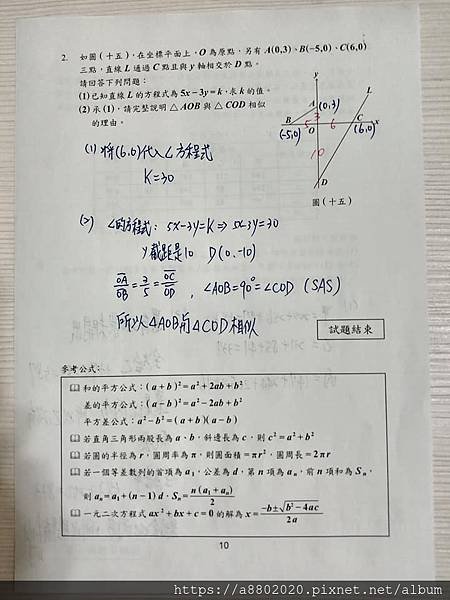 2. 如圖(十五),在坐標平面上,O 為原點,另有 A(0,3)、B(-5,0)、C(6,0)
三點,直線 L 通過 C 點且與 y 軸相交於 D 點。
請回答下列問題:
(1) 已知直線 L 的方程式為 5x-3y=k,求 k 的值。
(2) 承(1),請完整說明 △AOB 與 △COD 相似
的理由。
y
L
A (0,3)
B 5 3 6 C x
O
(-5,0) (6,0)
10
D
圖(十五)
(1) 將(6,0)代入L方程式
K=30
(2) L的方程式: 5x-3y=K⇒5x-3y=30
y截距是10 D(0,-10)
OA/OB=3/5=OC/OD , ∠AOB=90°=∠COD (SAS)
所以△AOB與△COD相似
試題結束
參考公式:
和的平方公式:(a+b)²=a²+2ab+b²
差的平方公式:(a-b)²=a²-2ab+b²
平方差公式:a²-b²=(a+b)(a-b)
若直角三角形兩股長為 a、b,斜邊長為 c,則 c²=a²+b²
若圓的半徑為 r,圓周率為 π,則圓面積=πr²,圓周長=2πr
若一個等差數列的首項為 a₁,公差為 d,第 n 項為 aₙ,前 n 項和為 Sₙ,
則 aₙ=a₁+(n-1)d,Sₙ=n(a₁+aₙ)/2
一元二次方程式 ax²+bx+c=0 的解為 x=(-b±√(b²-4ac))/2a
10
https://a8802020.pixnet.net/album